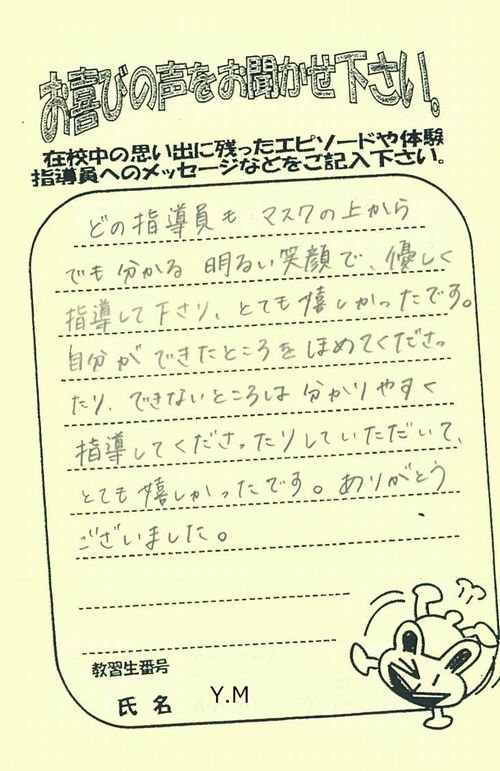 お喜びの声をお聞かせ下さい。
在校中の思い出に残ったエピソードや体験
指導員へのメッセージなどをご記入下さい。
どの指導員も マスクの上から
でも分かる 明るい笑顔で、優しく
指導して下さり、とても嬉しかったです。
自分ができたところをほめてくださっ
たり、できないところは 分かりやすく
指導してくださったりしていただいて、
とても嬉しかったです。ありがとう
ございました。
教習生番号
氏名 Y.M